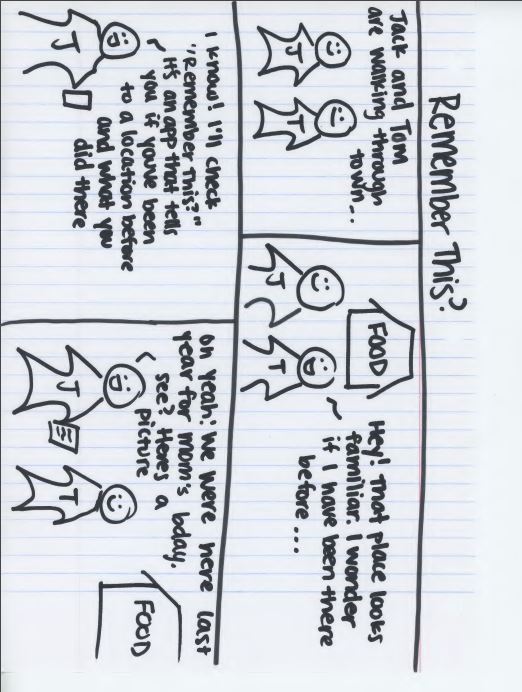 Remember This?
Jack and Tom
are walking through
town...
J
T
FOOD
Hey! That place looks
familiar. I wonder
if I have been there
before...
J
T
I know! I'll check
"Remember This?"
It's an app that tells
you if youve been
to a location before
and what you
did there
J
oh yeah! We were here last
year for mom's bday.
see? Heres a
picture
FOOD
J
T